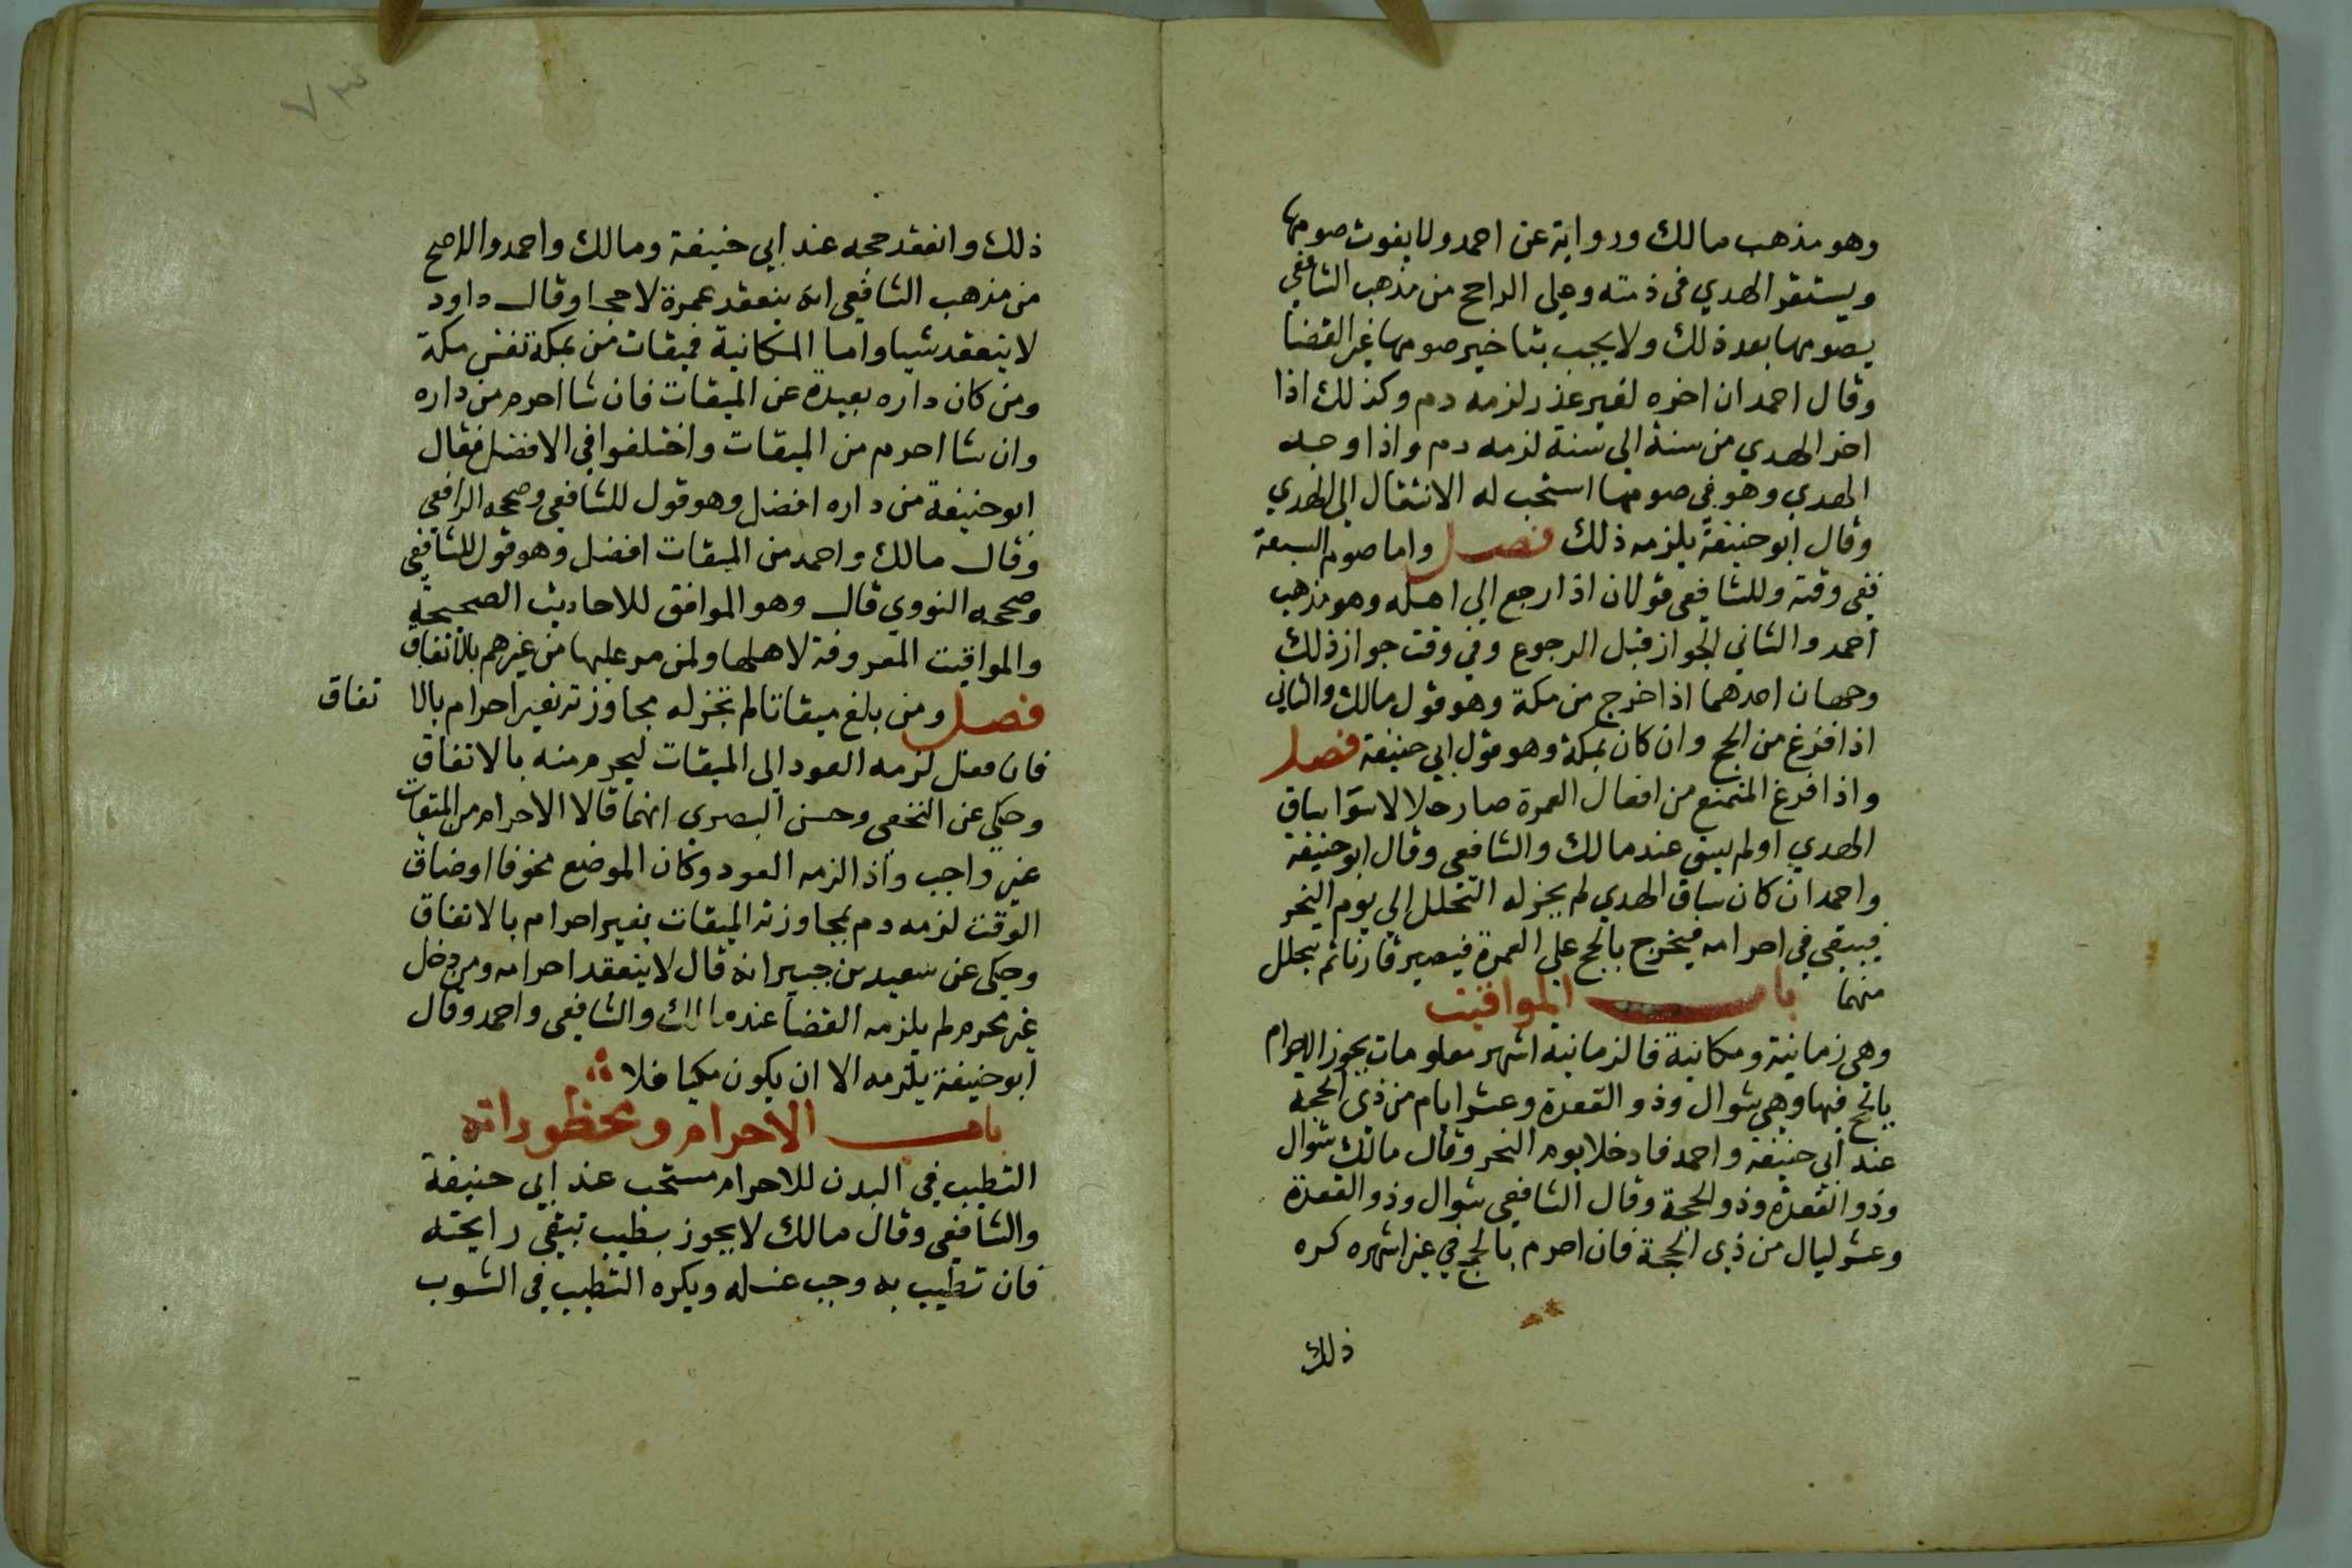 وهو مذهب مالك ورواية عن احمد ولا يفوت صومها
ويستقر الهدي في ذمته وعلى الراجح من مذهب الشافعي
يصومها بعد ذلك ولا يجب بتاخير صومها غير القضا
وقال احمد ان اخره لغير عذر لزمه دم وكذلك اذا
اخر الهدي من سنة الى سنة لزمه دم واذا وجد
الهدي وهو في صومها استحب له الانتقال الى الهدي
وقال ابو حنيفة يلزمه ذلك فصل واما صوم السبعة
ففي وقته وللشافعي قولان اذا رجع الي اهله وهو مذهب
احمد والثاني الجواز قبل الرجوع وفي وقت جواز ذلك
وجهان احدهما اذا خرج من مكة وهو قول مالك والثاني
اذا فرغ من الحج وان كان بمكة وهو قول ابي حنيفة فصل
واذا فرغ المتمتع من افعال العمرة صار حلالا سوا ساق
الهدي اولم يسق عند مالك والشافعي وقال ابو حنيفة
واحمد ان كان ساق الهدي لم يجز له التحلل الي يوم النحر
فيبقي في احرامه فيخرج بالحج على العمرة فيصير قارنا ثم يحلل
منهما باب المواقيت
وهي زمانية ومكانية فالزمانية اشهر معلومات يجوز الاحرام
بالحج فيها وهي شوال وذو القعدة وعشر ايام من ذي الحجة
عند ابي حنيفة واحمد فادخلا يوم النحر وقال مالك شوال
وذو القعدة وذو الحجة وقال الشافعي شوال وذو القعدة
وعشر ليال من ذي الحجة فان احرم بالحج في غير اشهره كره
ذلك
٧٣
ذلك وانعقد حجه عند ابي حنيفة ومالك واحمد والاصح
من مذهب الشافعي انه ينعقد عمرة لا حجا وقال داود
لا ينعقد شيا واما المكانية فميقات من بمكة نفس مكة
ومن كان داره بعيدة عن الميقات فان شا احرم من داره
وان شا احرم من الميقات واختلفوا في الافضل فقال
ابو حنيفة من داره افضل وهو قول للشافعي وصححه الرافعي
وقال مالك واحمد من الميقات افضل وهو قول للشافعي
وصححه النووي قال وهو الموافق للاحاديث الصحيحة
والمواقيت المعروفة لاهلها ولمن مر عليها من غيرهم بالاتفاق
فصل ومن بلغ ميقاتا لم تجز له مجاوزته بغير احرام بالا تفاق
فان فعل لزمه العود الى الميقات ليحرم منه بالاتفاق
وحكي عن النخعي وحسن البصري انهما قالا الاحرام من الميقات
غير واجب واذا لزمه العود وكان الموضع مخوفا او ضاق
الوقت لزمه دم بمجاوزته الميقات بغير احرام بالاتفاق
وحكى عن سعيد بن جبير انه قال لا ينعقد احرامه ومن دخل
غير محرم لم يلزمه القضا عند مالك والشافعي واحمد وقال
ابو حنيفة يلزمه الا ان يكون مكيا فلا
باب الاحرام ومحظوراته
التطيب في البدن للاحرام مستحب عند ابي حنيفة
والشافعي وقال مالك لا يجوز بطيب تبقي رايحته
فان تطيب به وجب غسله ويكره التطيب في الثوب